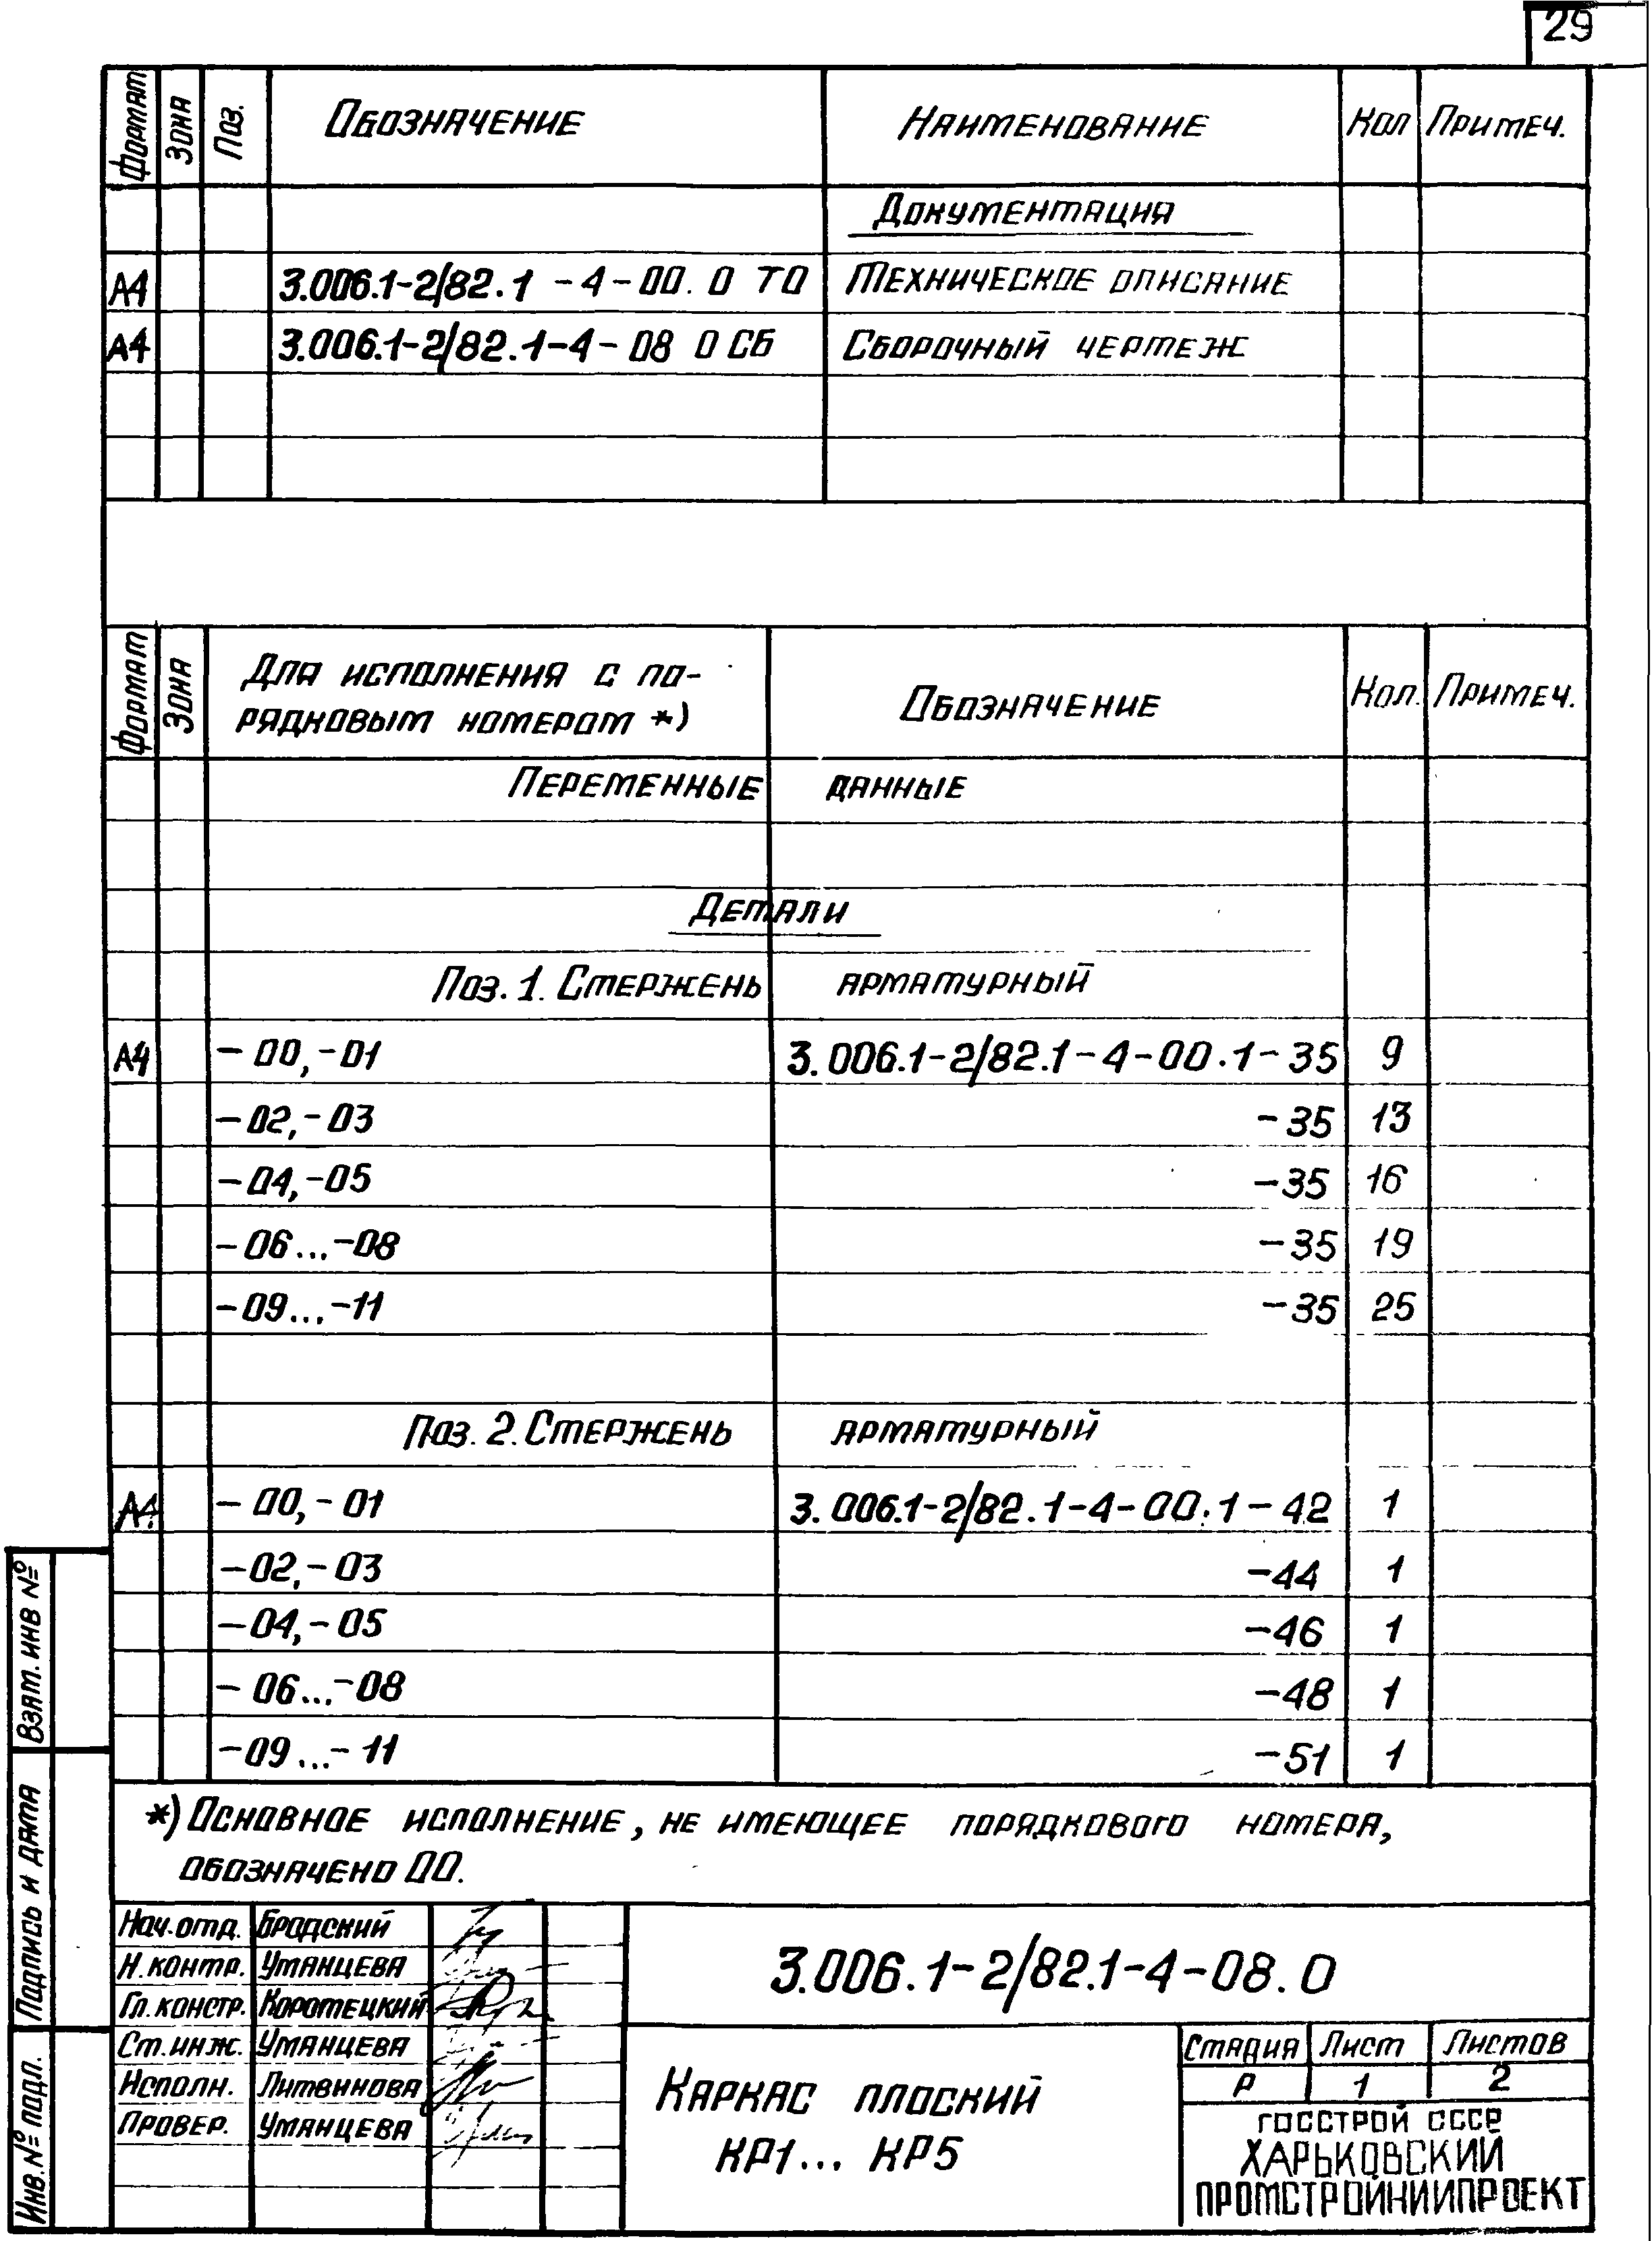 29
Формат Зона Поз. Обозначение Наименование Кол Примеч.
Документация
А4 3.006.1-2/82.1 -4-00.0 ТО Техническое описание
А4 3.006.1-2/82.1-4-08 0 СБ Сборочный чертеж
Формат Зона Для исполнения с по- Обозначение Кол. Примеч.
рядковым номером *)
Переменные данные
Детали
Поз. 1. Стержень арматурный
А4 -00,-01 3.006.1-2/82.1-4-00.1-35 9
-02,-03 -35 13
-04,-05 -35 16
-06...-08 -35 19
-09...-11 -35 25
Поз. 2. Стержень арматурный
А4 -00,-01 3.006.1-2/82.1-4-00.1-42 1
-02,-03 -44 1
-04,-05 -46 1
-06...-08 -48 1
-09...-11 -51 1
*) Основное исполнение, не имеющее порядкового номера,
обозначено 00.
Взам. инв №
Подпись и дата
Инв. № подл.
Нач. отд. Бродский
Н. контр. Уманцева
Гл. констр. Коротецкий
Ст. инж. Уманцева
Исполн. Литвинова
Провер. Уманцева
3.006.1-2/82.1-4-08.0
Каркас плоский
КР1... КР5
Стадия Лист Листов
Р 1 2
ГОССТРОЙ СССР
ХАРЬКОВСКИЙ
ПРОМСТРОЙНИИПРОЕКТ